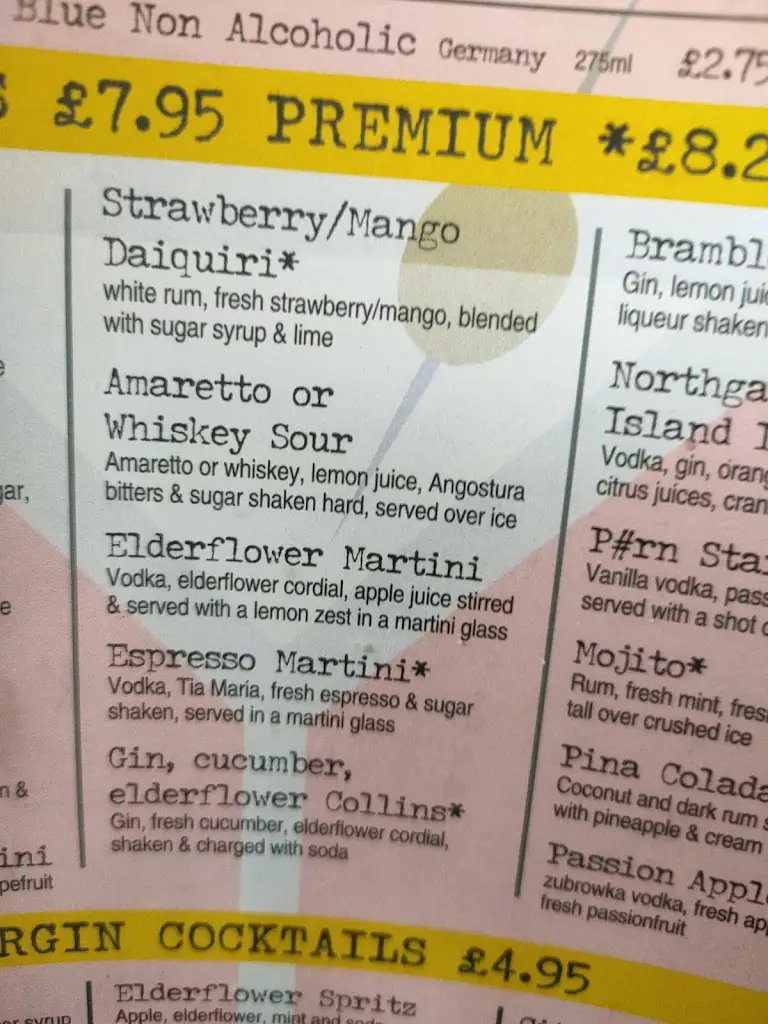 Blue Non Alcoholic Germany 275ml £2.75
£7.95 PREMIUM *£8.2
Strawberry/Mango
Daiquiri*
white rum, fresh strawberry/mango, blended
with sugar syrup & lime
Amaretto or
Whiskey Sour
Amaretto or whiskey, lemon juice, Angostura
bitters & sugar shaken hard, served over ice
Elderflower Martini
Vodka, elderflower cordial, apple juice stirred
& served with a lemon zest in a martini glass
Espresso Martini*
Vodka, Tia Maria, fresh espresso & sugar
shaken, served in a martini glass
Gin, cucumber,
elderflower Collins*
Gin, fresh cucumber, elderflower cordial,
shaken & charged with soda
Brambl
Gin, lemon jui
liqueur shaken
Northga
Island
Vodka, gin, orang
citrus juices, cran
P#rn Star
Vanilla vodka, pass
served with a shot
Mojito*
Rum, fresh mint, fres
tall over crushed ice
Pina Colada
Coconut and dark rum s
with pineapple & cream
Passion Apple
zubrowka vodka, fresh ap
fresh passionfruit
gar,
n &
ini
pefruit
RGIN COCKTAILS £4.95
Elderflower Spritz
Apple, elderflower, mint and soda
er syrup